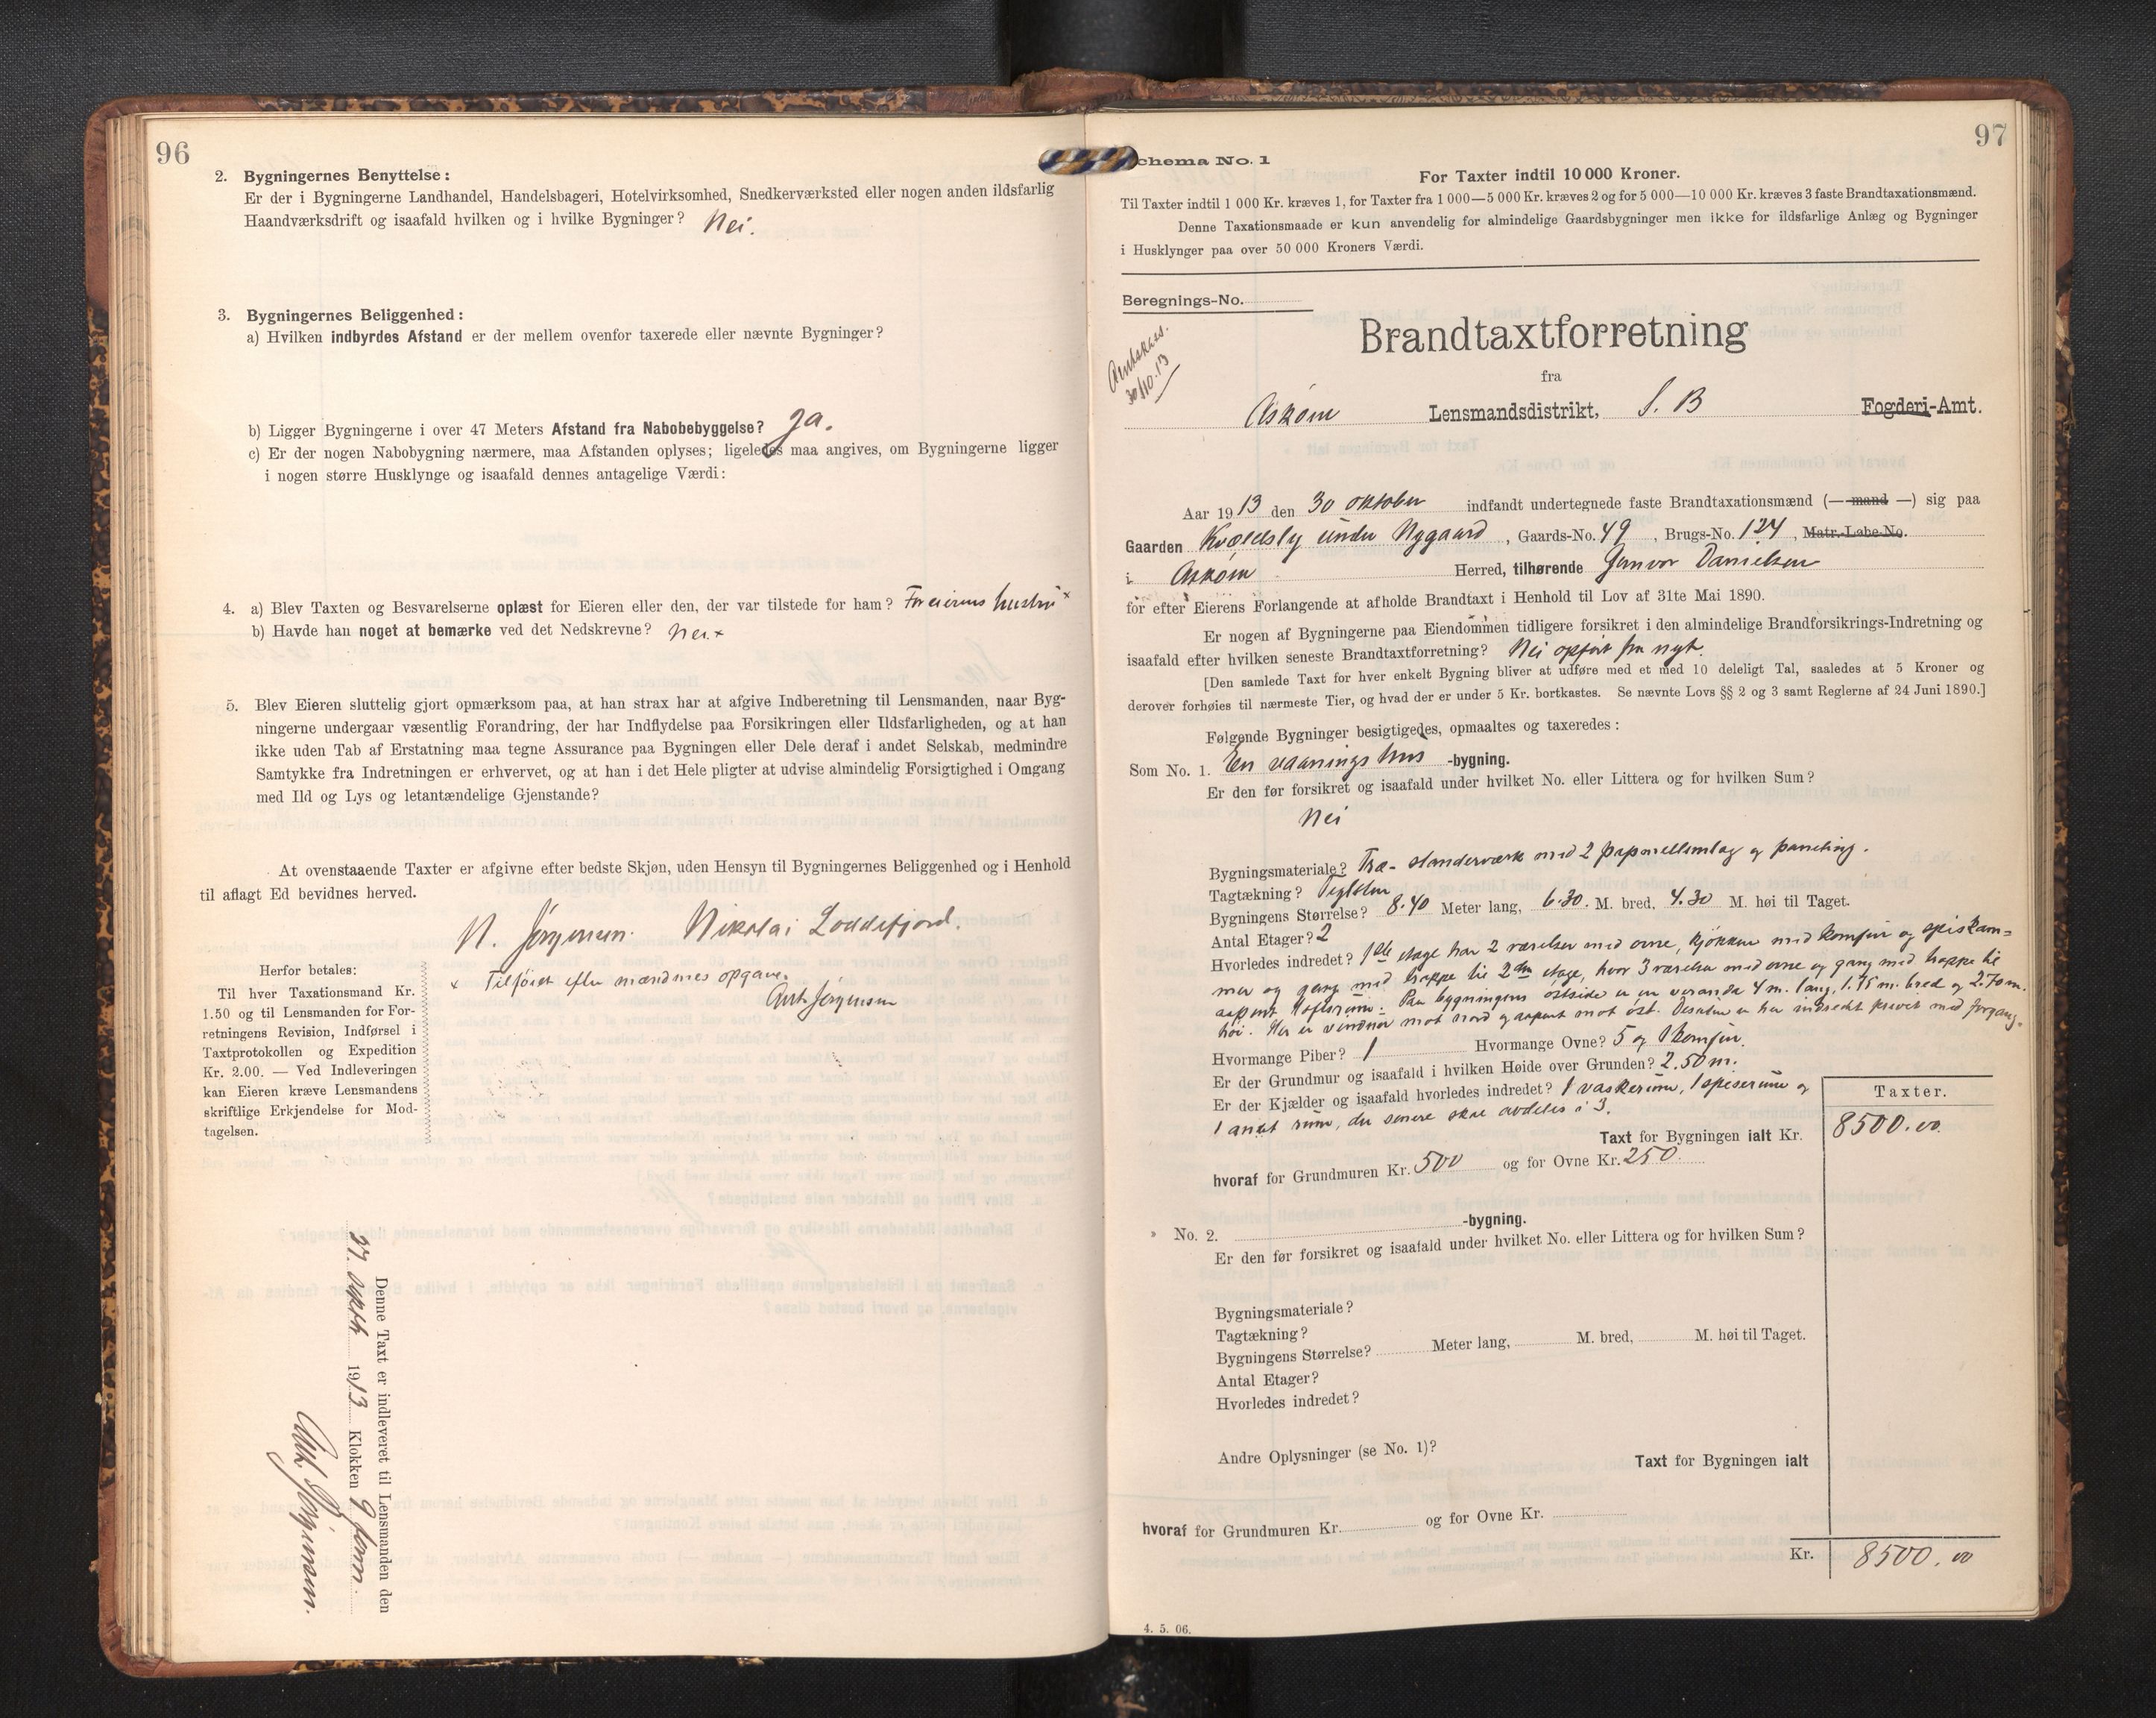 96
2. Bygningernes Benyttelse:
Er der i Bygningerne Landhandel, Handelsbageri, Hotelvirksomhed, Snedkerværksted eller nogen anden ildsfarlig
Haandværksdrift og isaafald hvilken og i hvilke Bygninger? Nei.
3. Bygningernes Beliggenhed:
a) Hvilken indbyrdes Afstand er der mellem ovenfor taxerede eller nævnte Bygninger?
b) Ligger Bygningerne i over 47 Meters Afstand fra Nabobebyggelse? Ja.
c) Er der nogen Nabobygning nærmere, maa Afstanden oplyses; ligeledes maa angives, om Bygningerne ligger
i nogen større Husklynge og isaafald dennes antagelige Værdi:
4. a) Blev Taxten og Besvarelserne oplæst for Eieren eller den, der var tilstede for ham? For eierens hustru x
b) Havde han noget at bemærke ved det Nedskrevne? Nei. x
5. Blev Eieren sluttelig gjort opmærksom paa, at han strax har at afgive Indberetning til Lensmanden, naar Byg-
ningerne undergaar væsentlig Forandring, der har Indflydelse paa Forsikringen eller Ildsfarligheden, og at han
ikke uden Tab af Erstatning maa tegne Assurance paa Bygningen eller Dele deraf i andet Selskab, medmindre
Samtykke fra Indretningen er erhvervet, og at han i det Hele pligter at udvise almindelig Forsigtighed i Omgang
med Ild og Lys og letantændelige Gjenstande?
At ovenstaaende Taxter er afgivne efter bedste Skjøn, uden Hensyn til Bygningernes Beliggenhed og i Henhold
til aflagt Ed bevidnes herved.
N. Jørgensen. Nikolai Loddefjord.
x Tilføiet efter mændnes opgave.
Ant. Jørgensen
Herfor betales:
Til hver Taxationsmand Kr.
1.50 og til Lensmanden for For-
retningens Revision, Indførsel i
Taxtprotokollen og Expedition
Kr. 2.00. — Ved Indleveringen
kan Eieren kræve Lensmandens
skriftlige Erkjendelse for Mod-
tagelsen.
Denne Taxt er indleveret til Lensmanden den
1913 Klokken 9 form.
Ant. Jørgensen.
97
chema No. 1
For Taxter indtil 10 000 Kroner.
Til Taxter indtil 1 000 Kr. kræves 1, for Taxter fra 1 000—5 000 Kr. kræves 2 og for 5 000—10 000 Kr. kræves 3 faste Brandtaxationsmænd.
Denne Taxationsmaade er kun anvendelig for almindelige Gaardsbygninger men ikke for ildsfarlige Anlæg og Bygninger
i Husklynger paa over 50 000 Kroners Værdi.
Beregnings-No.
30/10.13
Brandtaxtforretning
fra
Askøen Lensmandsdistrikt, S. B Fogderi-Amt.
Aar 1913 den 30 oktober indfandt undertegnede faste Brandtaxationsmænd (— mand —) sig paa
Gaarden Kvældsly under Nygaard, Gaards-No. 49, Brugs-No. 124, Matr.-Løbe-No.
i Askøen Herred, tilhørende Gunvor Danielsen
for efter Eierens Forlangende at afholde Brandtaxt i Henhold til Lov af 31te Mai 1890.
Er nogen af Bygningerne paa Eiendommen tidligere forsikret i den almindelige Brandforsikrings-Indretning og
isaafald efter hvilken seneste Brandtaxtforretning? Nei opført fra nyt.
[Den samlede Taxt for hver enkelt Bygning bliver at udføre med et med 10 deleligt Tal, saaledes at 5 Kroner og
derover forhøies til nærmeste Tier, og hvad der er under 5 Kr. bortkastes. Se nævnte Lovs §§ 2 og 3 samt Reglerne af 24 Juni 1890.]
Følgende Bygninger besigtigedes, opmaaltes og taxeredes:
Som No. 1. En vaanings hus -bygning.
Er den før forsikret og isaafald under hvilket No. eller Littera og for hvilken Sum?
Nei
Bygningsmateriale? Træ- standerværk med 2 papmellemlag og paneling.
Tagtækning? Teglsten
Bygningens Størrelse? 8.40 Meter lang, 6.30. M. bred, 4.30 M. høi til Taget.
Antal Etager? 2
Hvorledes indredet? 1ste etage har 2 værelser med ovne, kjøkken med komfur og spiskam=
mer og gang med trappe til 2den etage, hvor 3 værelser med ovne og gang med trappe til
aapent loftsrum. Paa bygningens østside er en veranda 4 m. lang, 1.75 m. bred og 2.70 m.
høi. Her er vinduer mot nord og aapent mot øst. Desuden er her indredet privet med forgang.
Hvormange Piber? 1 Hvormange Ovne? 5 og 1 komfur.
Er der Grundmur og isaafald i hvilken Høide over Grunden? 2.50 m.
Er der Kjælder og isaafald hvorledes indredet? 1 vaskerum, 1 speserum og
1 andet rum, der senere skal avdeles i 3.
Taxter.
Taxt for Bygningen ialt Kr. 8500.00
hvoraf for Grundmuren Kr. 500 og for Ovne Kr. 250.
» No. 2. -bygning.
Er den før forsikret og isaafald under hvilket No. eller Littera og for hvilken Sum?
Bygningsmateriale?
Tagtækning?
Bygningens Størrelse? Meter lang, M. bred, M. høi til Taget.
Antal Etager?
Hvorledes indredet?
Andre Oplysninger (se No. 1)?
Taxt for Bygningen ialt
hvoraf for Grundmuren Kr. og for Ovne Kr.
Kr. 8500.00
4. 5. 06.